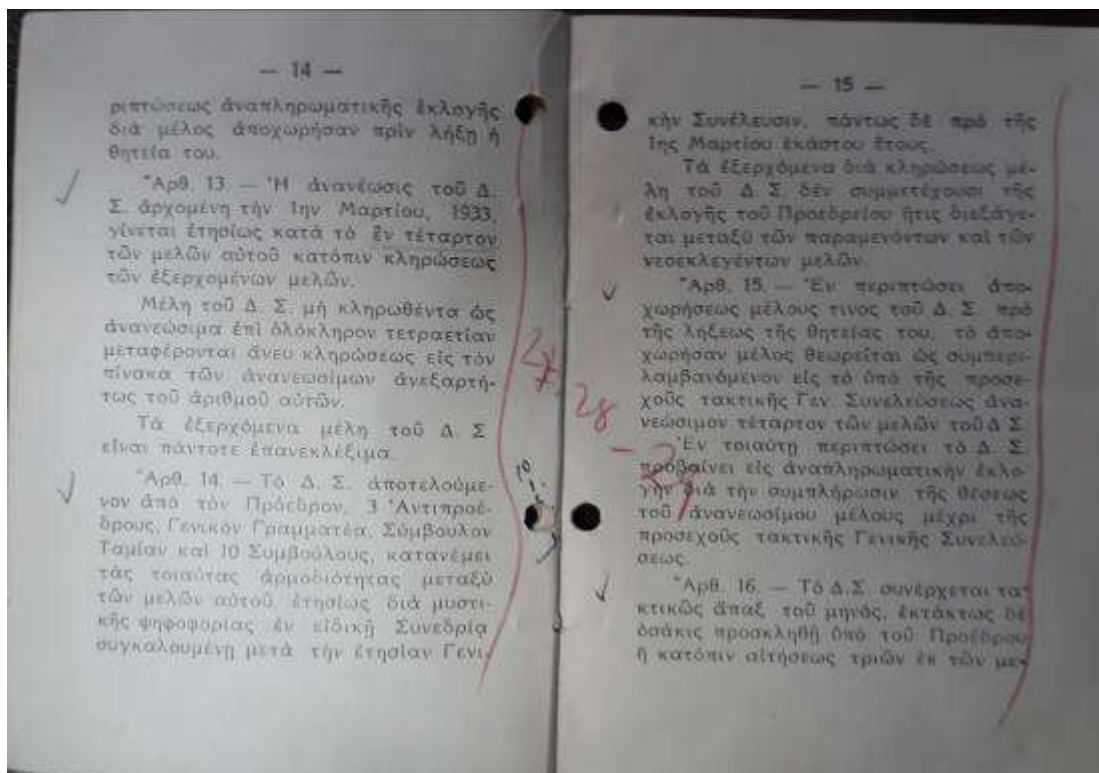 — 14 —
ριπτώσεως ἀναπληρωματικῆς ἐκλογῆς
διὰ μέλος ἀποχωρῆσαν πρὶν λήξῃ ἡ
θητεία του.
Ἄρθ. 13. — Ἡ ἀνανέωσις τοῦ Δ.
Σ. ἀρχομένη τὴν 1ην Μαρτίου, 1933,
γίνεται ἐτησίως κατὰ τὸ ἓν τέταρτον
τῶν μελῶν αὐτοῦ κατόπιν κληρώσεως
τῶν ἐξερχομένων μελῶν.
Μέλη τοῦ Δ. Σ. μὴ κληρωθέντα ὡς
ἀνανεώσιμα ἐπὶ ὁλόκληρον τετραετίαν
μεταφέρονται ἄνευ κληρώσεως εἰς τὸν
πίνακα τῶν ἀνανεωσίμων ἀνεξαρτή-
τως τοῦ ἀριθμοῦ αὐτῶν.
Τὰ ἐξερχόμενα μέλη τοῦ Δ. Σ
εἶναι πάντοτε ἐπανεκλέξιμα.
Ἄρθ. 14. — Τὸ Δ. Σ. ἀποτελούμε-
νον ἀπὸ τὸν Πρόεδρον, 3 Ἀντιπροέ-
δρους, Γενικὸν Γραμματέα, Σύμβουλον
Ταμίαν καὶ 10 Συμβούλους, κατανέμει
τὰς τοιαύτας ἁρμοδιότητας μεταξὺ
τῶν μελῶν αὐτοῦ ἐτησίως διὰ μυστι-
κῆς ψηφοφορίας ἐν εἰδικῇ Συνεδρίᾳ
συγκαλουμένῃ μετὰ τὴν ἐτησίαν Γενι-
27-28
-29
10
— 15 —
κὴν Συνέλευσιν, πάντως δὲ πρὸ τῆς
1ης Μαρτίου ἑκάστου ἔτους.
Τὰ ἐξερχόμενα διὰ κληρώσεως μέ-
λη τοῦ Δ Σ δὲν συμμετέχουσι τῆς
ἐκλογῆς τοῦ Προεδρείου ἥτις διεξάγε-
ται μεταξὺ τῶν παραμενόντων καὶ τῶν
νεοεκλεγέντων μελῶν.
Ἄρθ. 15. — Ἐν περιπτώσει ἀπο-
χωρήσεως μέλους τινος τοῦ Δ. Σ. πρὸ
τῆς λήξεως τῆς θητείας του, τὸ ἀπο-
χωρῆσαν μέλος θεωρεῖται ὡς συμπερι-
λαμβανόμενον εἰς τὸ ὑπὸ τῆς προσε-
χοῦς τακτικῆς Γεν. Συνελεύσεως ἀνα-
νεώσιμον τέταρτον τῶν μελῶν τοῦ Δ Σ
Ἐν τοιαύτῃ περιπτώσει τὸ Δ. Σ.
προβαίνει εἰς ἀναπληρωματικὴν ἐκλο-
γὴν διὰ τὴν συμπλήρωσιν τῆς θέσεως
τοῦ ἀνανεωσίμου μέλους μέχρι τῆς
προσεχοῦς τακτικῆς Γενικῆς Συνελεύ-
σεως
Ἄρθ. 16. — Τὸ Δ.Σ. συνέρχεται τα-
κτικῶς ἅπαξ τοῦ μηνός, ἐκτάκτως δὲ
ὁσάκις προσκληθῇ ὑπὸ τοῦ Προέδρου
ἢ κατόπιν αἰτήσεως τριῶν ἐκ τῶν με-